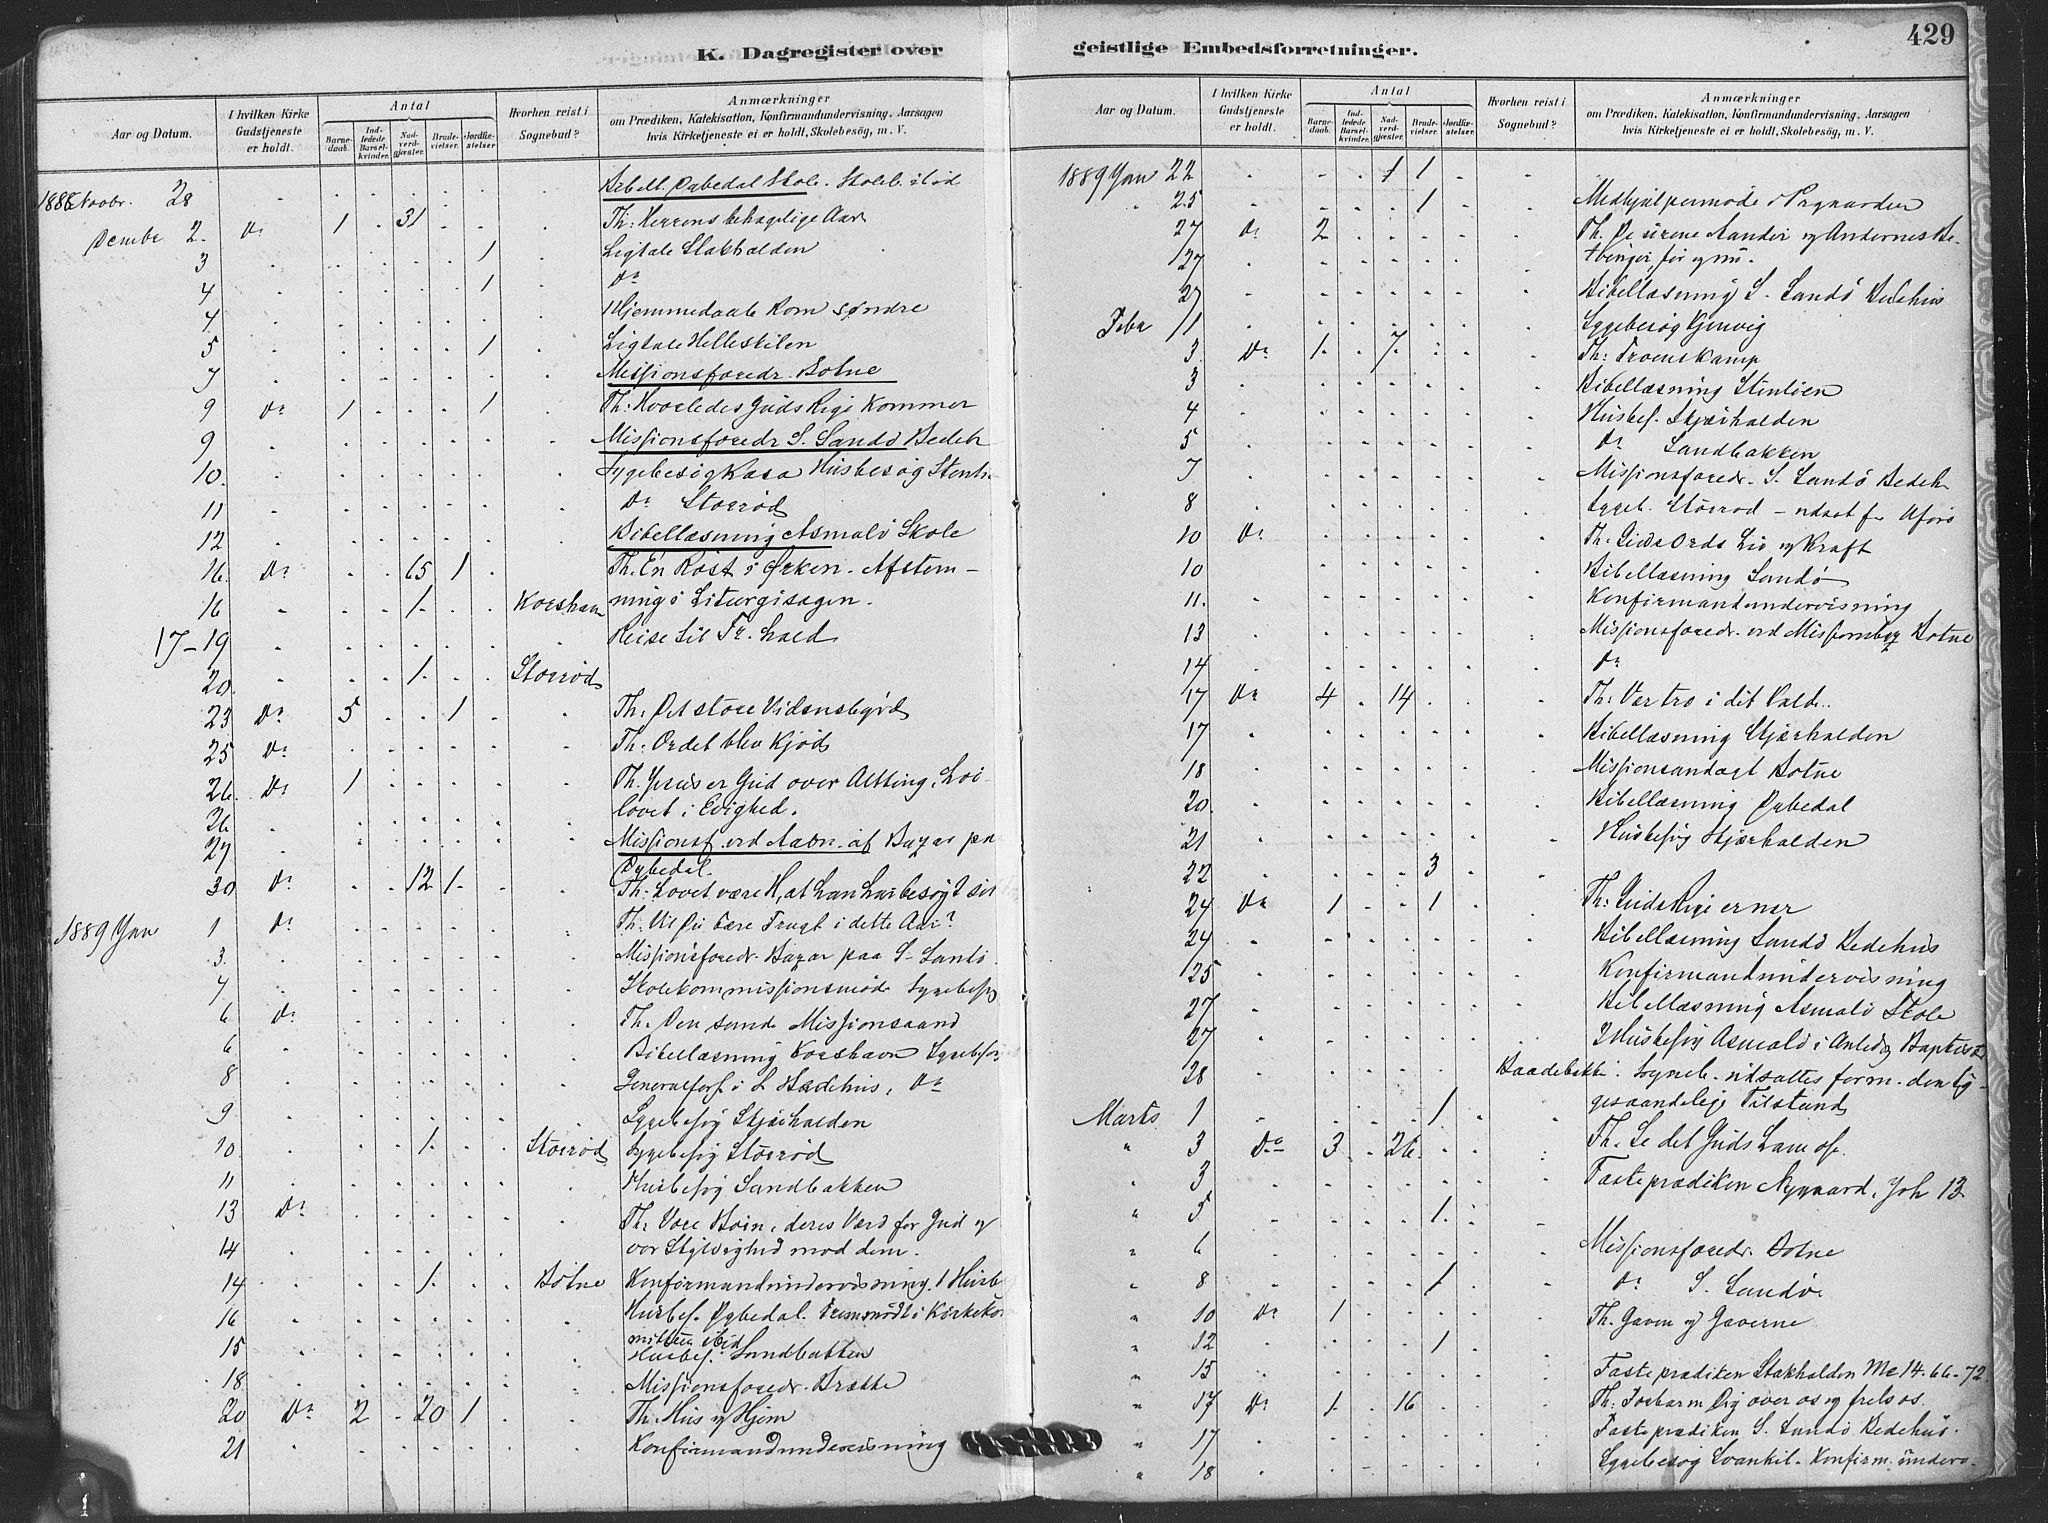 K. Dagregister over
geistlige Embedsforretninger.
429
Aar og Datum.
I hvilken Kirke Gudstjeneste er holdt.
Antal
Barnedaab.
Indledede Barselkvinder.
Nadverdgjæster.
Brudevielser.
Jordfæstelser.
Hvorhen reist i Sognebud?
Anmærkninger
om Prædiken, Katekisation, Konfirmandundervisning, Aarsagen
hvis Kirketjeneste ei er holdt, Skolebesög, m. V.
Novbr. 28 Dybedal Skole.
2. Do 1 31 Th: Herrens behagelige Aar
3 1 Ligtale Stakhalden
4 1 Do
4 Hjemmedaab Rom søndre
5 1 Ligtale Helleskilen
7 Missionsforedr. Botne
9 Do 1 1 Th: Hvorledes Guds Rige kommer
9 Missionsforedr S. Sandö Bedeh
10. Sygebesög Husbesög
11 Do Storröd
12 Bibellæsning Asmalö Skole
16. Do 65 1 Th. En Röst i Ørken. Afstem-
16 1. Korshavn ning i Liturgisagen.
17-19 Reise til Fr.hald
20. 1. Storröd
23 Do 5 1 Th: Det store Vidnesbyrd
25 Do Th: Ordet blev Kjöd
26. Do 1 Th. Jesus er Gud over Alting,
26 lovet i Evighed.
27 Missionsf. ved af Bazar paa
Dybedal.
30 Do 12 1. Th: Lovet være H, at han har besøgt sit
1889 Jan 1 Do Th: Vil Du bære Frugt i dette Aar?
3. Missionsforedr. Bazar paa S. Sandö.
4 Skolekommissionsmöde Sygebesög
6 Do Th. Den sande Missionsaand
6 Bibellæsning Korshavn Sygebesög
8 Generalfors. i S. Bedehus, Do
9 Sygebesög Skjærhalden
10. 1. Storröd Sygebesög Storröd
11 Husbesög Sandbakken
13 Do Th: Vore Börn, deres Værd for Gud og
14 vor Skyldighed mod dem.
14 1. Botne Konfirmandundervisning. 1 Husb
16 Husbes. Dybedal. Kirkeko-
15 Husbes. Sandbakken
18 Missionsforedr. Brække
20 Do 2 20 1 Th: Hus og Hjem
21 Konfirmandundervisning
Aar og Datum.
I hvilken Kirke Gudstjeneste er holdt.
Antal
Barnedaab.
Indledede Barselkvinder.
Nadverdgjæster.
Brudevielser.
Jordfæstelser.
Hvorhen reist i Sognebud?
Anmærkninger
om Prædiken, Katekisation, Konfirmandundervisning, Aarsagen
hvis Kirketjeneste ei er holdt, Skolebesög, m. V.
1889 Jan 22 1 1
25 1 Medhjælpermöde i Prgaarden
27 Do 2 Th. De urene Aander og Andernes Be-
27 tvinger för og nu.
27 Bibellæsning S. Sandö Bedehus
Febr 1 Sygebesög
3. Do 1. 7. Th: Troens Kamp
3 Bibellæsning
4 Husbes. Skjærhalden
5 Do Sandbakken
7 Missionsforedr. S. Sandö Bedeh
8 Sygeb. Storröd - udsat
10 Do Th. Guds Ords Liv og Kraft
10 Bibellæsning Sandö
11. Konfirmandundervisning
13 Missionsforedr. ved Botne
14 Do
17 Do 4 14 Th: Vær tro i dit Kald.
17 Bibellæsning Skjærhalden
18 Missionsandagt Botne
20 Bibellæsning Dybedal
21 Husbesög Skjærhalden
22 3
24 Do 1 1 Th: Guds Rige er nær
24 Bibellæsning Sandö Bedehus
25 Konfirmandundervisning
27 Bibellæsning Asmalö Skole
27 2 Husbesög Asmalö i Anledn. Baptist
28 Baadebakke. Sygeb. udsattes form. den Sy-
Marts 1 1 ges aandelige Tilstand
3 Do 3 26. Th. Se det Guds Lam osv.
3 Fasteprædiken Nygaard, Joh 13
5 1.
6 Missionsforedr. Botne
8 1 Do S. Sandö
10 Do 1 Th. Gaven og Gaverne
12 1
15 Fasteprædiken Stakhalden Mc 14. 66-72
17 Do 1. 16 Th. Forbarm Dig over os og frels os.
17 Fasteprædiken S. Sandö Bedehus.
18 Sygebesög Konfirm.underv.